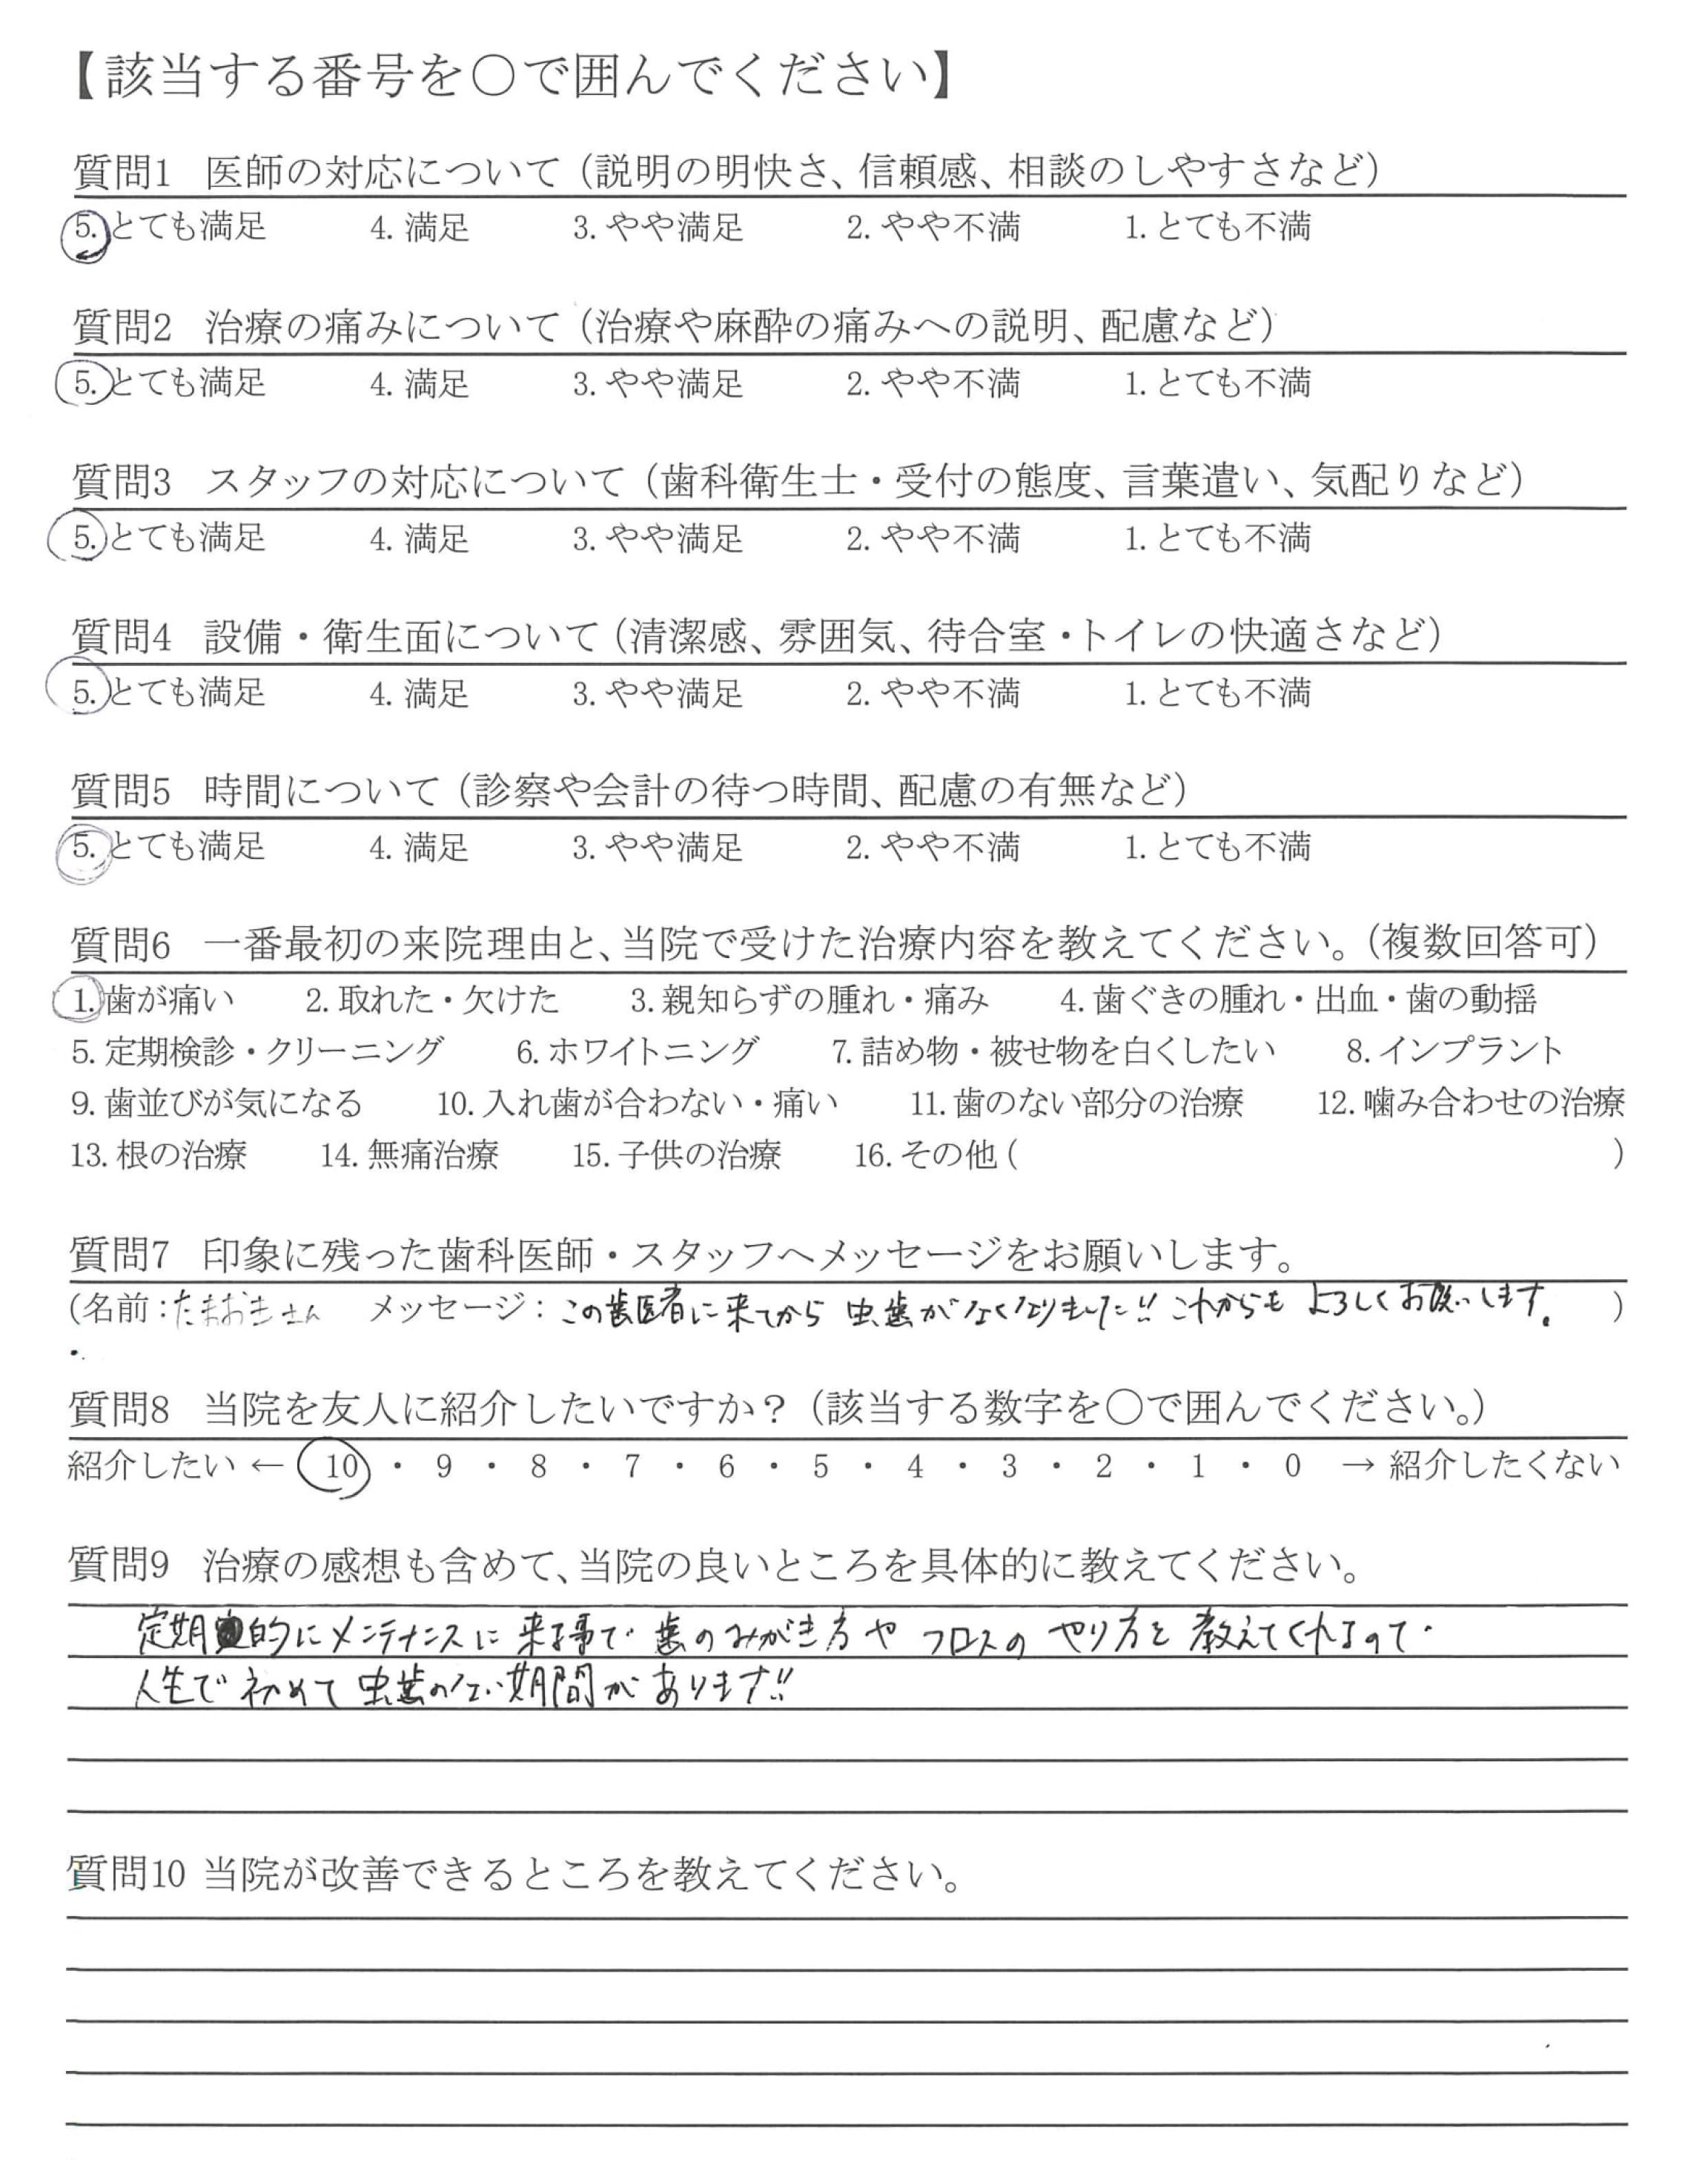 【該当する番号を〇で囲んでください】
質問1 医師の対応について（説明の明快さ、信頼感、相談のしやすさなど）
5. とても満足 4. 満足 3. やや満足 2. やや不満 1. とても不満
質問2 治療の痛みについて（治療や麻酔の痛みへの説明、配慮など）
5. とても満足 4. 満足 3. やや満足 2. やや不満 1. とても不満
質問3 スタッフの対応について（歯科衛生士・受付の態度、言葉遣い、気配りなど）
5. とても満足 4. 満足 3. やや満足 2. やや不満 1. とても不満
質問4 設備・衛生面について（清潔感、雰囲気、待合室・トイレの快適さなど）
5. とても満足 4. 満足 3. やや満足 2. やや不満 1. とても不満
質問5 時間について（診察や会計の待つ時間、配慮の有無など）
5. とても満足 4. 満足 3. やや満足 2. やや不満 1. とても不満
質問6 一番最初の来院理由と、当院で受けた治療内容を教えてください。（複数回答可）
1. 歯が痛い 2. 取れた・欠けた 3. 親知らずの腫れ・痛み 4. 歯ぐきの腫れ・出血・歯の動揺
5. 定期検診・クリーニング 6. ホワイトニング 7. 詰め物・被せ物を白くしたい 8. インプラント
9. 歯並びが気になる 10. 入れ歯が合わない・痛い 11. 歯のない部分の治療 12. 噛み合わせの治療
13. 根の治療 14. 無痛治療 15. 子供の治療 16. その他 ( )
質問7 印象に残った歯科医師・スタッフへメッセージをお願いします。
(名前：たまおきさん メッセージ：この歯医者に来てから 虫歯がなくなりました!! これからも よろしくお願いします。 )
質問8 当院を友人に紹介したいですか？（該当する数字を〇で囲んでください。）
紹介したい ← 10 ・ 9 ・ 8 ・ 7 ・ 6 ・ 5 ・ 4 ・ 3 ・ 2 ・ 1 ・ 0 → 紹介したくない
質問9 治療の感想も含めて、当院の良いところを具体的に教えてください。
定期的にメンテナンスに来る事で 歯のみがき方や フロスの やり方を 教えてくれるので
人生で初めて 虫歯のない期間が あります!!
質問10 当院が改善できるところを教えてください。